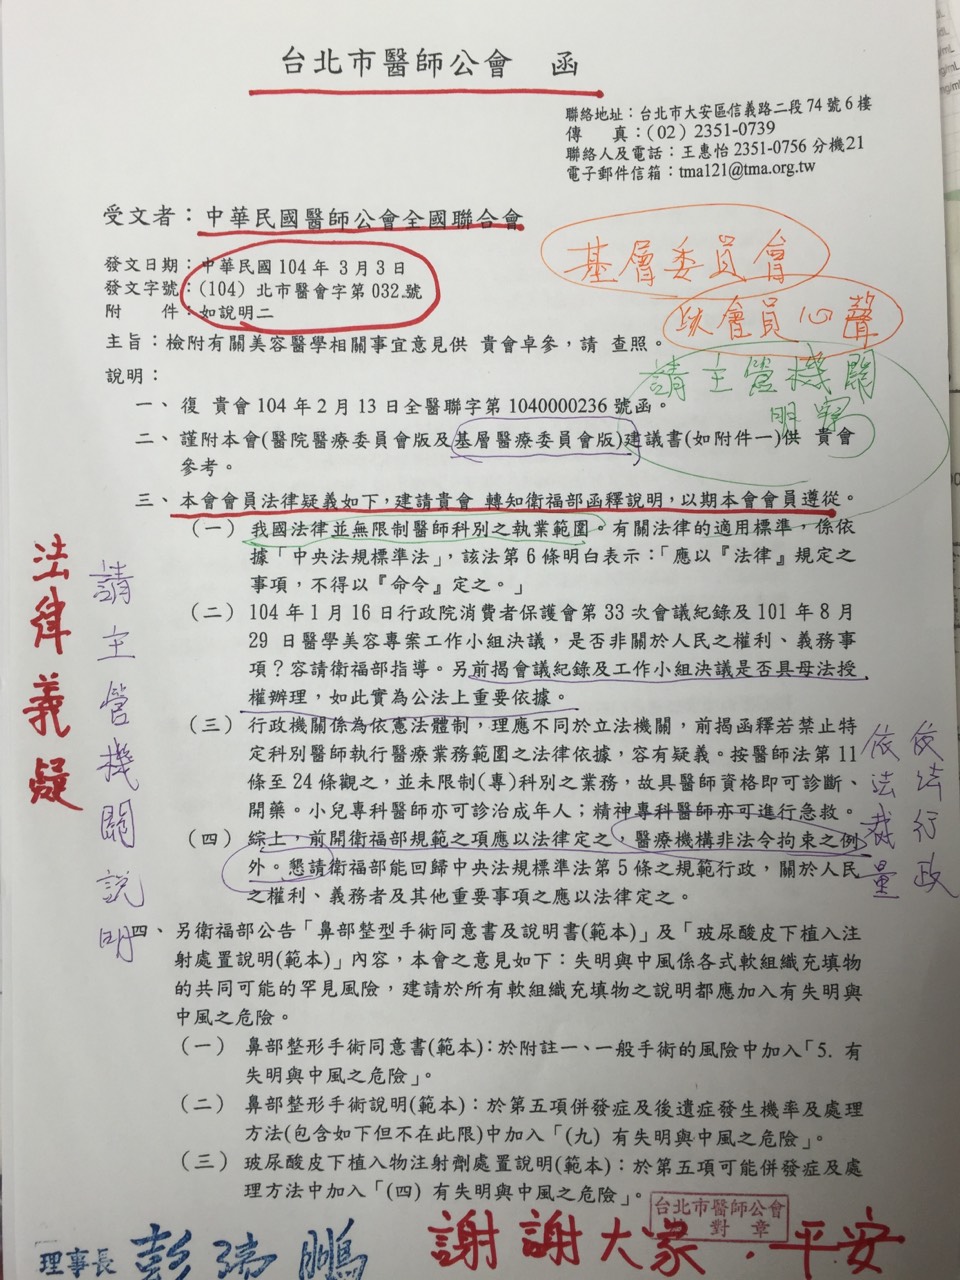 台北市醫師公會　函
聯絡地址：台北市大安區信義路二段 74 號 6 樓
傳　　真：(02) 2351-0739
聯絡人及電話：王惠怡 2351-0756 分機21
電子郵件信箱：tma121@tma.org.tw
受文者：中華民國醫師公會全國聯合會
發文日期：中華民國 104 年 3 月 3 日
發文字號：(104) 北市醫會字第 032 號
附　　件：如說明二
基層委員會
會員心聲
主旨：檢附有關美容醫學相關事宜意見供 貴會卓參，請 查照。
請主管機關
明察
說明：
一、復 貴會 104 年 2 月 13 日全醫聯字第 1040000236 號函。
二、謹附本會(醫院醫療委員會版及基層醫療委員會版)建議書(如附件一)供 貴會
參考。
三、本會會員法律疑義如下，建請貴會 轉知衛福部函釋說明，以期本會會員遵從。
(一) 我國法律並無限制醫師科別之執業範圍。有關法律的適用標準，係依
據「中央法規標準法」，該法第 6 條明白表示：「應以『法律』規定之
事項，不得以『命令』定之。」
(二) 104 年 1 月 16 日行政院消費者保護會第 33 次會議紀錄及 101 年 8 月
29 日醫學美容專案工作小組決議，是否非關於人民之權利、義務事
項？容請衛福部指導。另前揭會議紀錄及工作小組決議是否具母法授
權辦理，如此實為公法上重要依據。
(三) 行政機關係為依憲法體制，理應不同於立法機關，前揭函釋若禁止特
定科別醫師執行醫療業務範圍之法律依據，容有疑義。按醫師法第 11
條至 24 條觀之，並未限制(專)科別之業務，故具醫師資格即可診斷、
開藥。小兒專科醫師亦可診治成年人；精神專科醫師亦可進行急救。
(四) 綜上，前開衛福部規範之項應以法律定之，醫療機構非法令拘束之例
外。懇請衛福部能回歸中央法規標準法第 5 條之規範行政，關於人民
之權利、義務者及其他重要事項之應以法律定之。
法律義疑
請主管機關說明
依法行政
依法裁量
四、另衛福部公告「鼻部整型手術同意書及說明書(範本)」及「玻尿酸皮下植入注
射處置說明(範本)」內容，本會之意見如下：失明與中風係各式軟組織充填物
的共同可能的罕見風險，建請於所有軟組織充填物之說明都應加入有失明與
中風之危險。
(一) 鼻部整形手術同意書(範本)：於附註一、一般手術的風險中加入「5. 有
失明與中風之危險」。
(二) 鼻部整形手術說明(範本)：於第五項併發症及後遺症發生機率及處理
方法(包含如下但不在此限)中加入「(九) 有失明與中風之危險」。
(三) 玻尿酸皮下植入物注射劑處置說明(範本)：於第五項可能併發症及處
理方法中加入「(四) 有失明與中風之危險」。
台北市醫師公會
對　章
理事長 彭瑞鵬
謝謝大家．平安